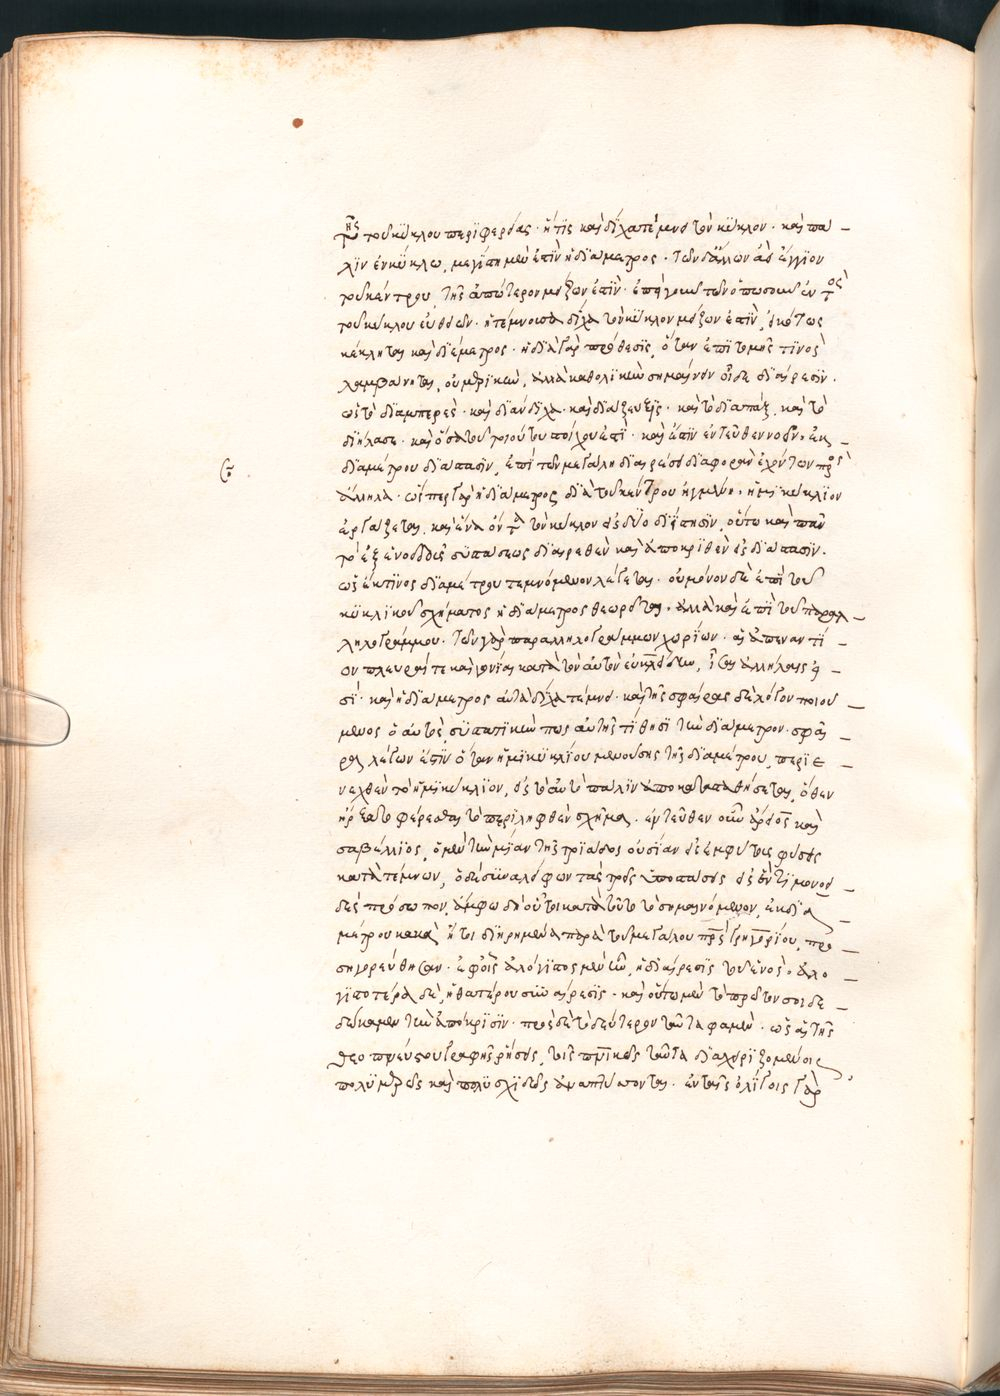 τῆς τοῦ κύκλου περιφερείας· ἥτις καὶ δίχα τέμνει τὸν κύκλον· καὶ πά
λιν ἐν κύκλω, μεγίστη μέν ἐστιν ἡ διάμετρος· τῶν δ' ἄλλων ἀεὶ ἔγγιον
τοῦ κέντρου, τῆς ἀπώτερον μείζων ἐστίν· ἐπεὶ γοῦν τῶν ὁπωσοῦν ἐντὸς
τοῦ κύκλου εὐθειῶν· ἡ τέμνουσα δίχα τὸν κύκλον μείζων ἐστὶν, εἰκότως
κέκληται καὶ διάμετρος· ἡ διὰ γὰρ πρόθεσις, ὅταν ἐπὶ τομῆς τινος
λαμβάνηται, οὐ μερικὴν, ἀλλὰ καθολικὴν σημαίνειν οἶδε διαίρεσιν·
ὡς τὸ διαμπερές· καὶ διάνδιχα· καὶ διάζευξις· καὶ τὸ διαπάξ, καὶ τὸ
διήλασε· καὶ ὅσα τοῦ τοιούτου στοίχου ἐστί· καὶ ἔστιν ἐντεῦθεν νοεῖν, ἐκ
διαμέτρου διάστασιν, ἐπὶ τῶν μεγάλη διαιρέσει διαφορὰν ἐχόντων πρὸς
ἄλληλα· ὥσπερ γὰρ ἡ διάμετρος διὰ τοῦ κέντρου ἠγμένη, ἡμικύκλιον
ἐργάζεται, καὶ ἕνα ὄντα τὸν κύκλον εἰς δύο διίστησιν, οὕτω καὶ πᾶν
τὸ ἐξ ἑνοειδοῦς συστάσεως διαιρεθὲν καὶ ἀποκριθὲν εἰς διάστασιν·
ὡς ἔκ τινος διαμέτρου τεμνόμενον λέγεται· οὐ μόνον δὲ ἐπὶ τοῦ
κυκλικοῦ σχήματος ἡ διάμετρος θεωρεῖται, ἀλλὰ καὶ ἐπὶ τοῦ παραλ
ληλογράμμου· τῶν γὰρ παραλληλογράμμων χωρίων· αἱ ἀπεναντί
ον πλευραί τε καὶ γωνίαι κατὰ τὸν αὐτὸν εὐκλείδην, ἴσαι ἀλλήλαις εἰ
σί· καὶ ἡ διάμετρος αὐτὰ δίχα τέμνει· καὶ τῆς σφαίρας δὲ λόγον ποιού
μενος ὁ αὐτὸς, συστατικήν πως αὐτῆς τίθησι τὴν διάμετρον· σφαῖ
ραν λέγων ἐστὶν ὅταν ἡμικυκλίου μενούσης τῆς διαμέτρου, περιε
νεχθὲν τὸ ἡμικύκλιον, εἰς τὸ αὐτὸ πάλιν ἀποκατασταθήσεται, ὅθεν
ἤρξατο φέρεσθαι τὸ περιληφθὲν σχῆμα· ἐντεῦθεν οὖν ἄρειος καὶ
σαβέλλιος, ὁ μὲν τὴν μίαν τῆς τριάδος οὐσίαν εἰς ἐκφύλους φύσεις
κατατέμνων, ὁ δὲ συναλείφων τὰς τρεῖς ὑποστάσεις εἰς ἕν τι μονοει
δὲς πρόσωπον, ἄμφω δηοῦτοι κατὰ τοῦτο τὸ σημαινόμενον, ἐκ δια
μέτρου κακὰ ἤτοι διηρημένα παρὰ τοῦ μεγάλου πατρὸς γρηγορίου, προ
σηγορεύθησαν· ἐφ' οἷς ἀλόγιστος μὲν ἦν, ἡ διαίρεσις τοῦ ἑνός· ἀλο
γιστοτέρα δὲ, ἡ θατέρου συναίρεσις· καὶ οὕτω μὲν τὸ πρῶτόν σοι δε
δώκαμεν τὴν ἀπόκρισιν· πρὸς δὲ τὸ δεύτερον ταῦτα φαμέν· ὡς αἱ τῆς
θεοπνεύστου γραφῆς ῥήσεις, τοῖς πνευματικῶς ταῦτα διαχειριζομένοις
πολυμερῶς καὶ πολυσχιδῶς ἀναπτύσσονται· ἐν ταῖς ὀλίγοις γὰρ